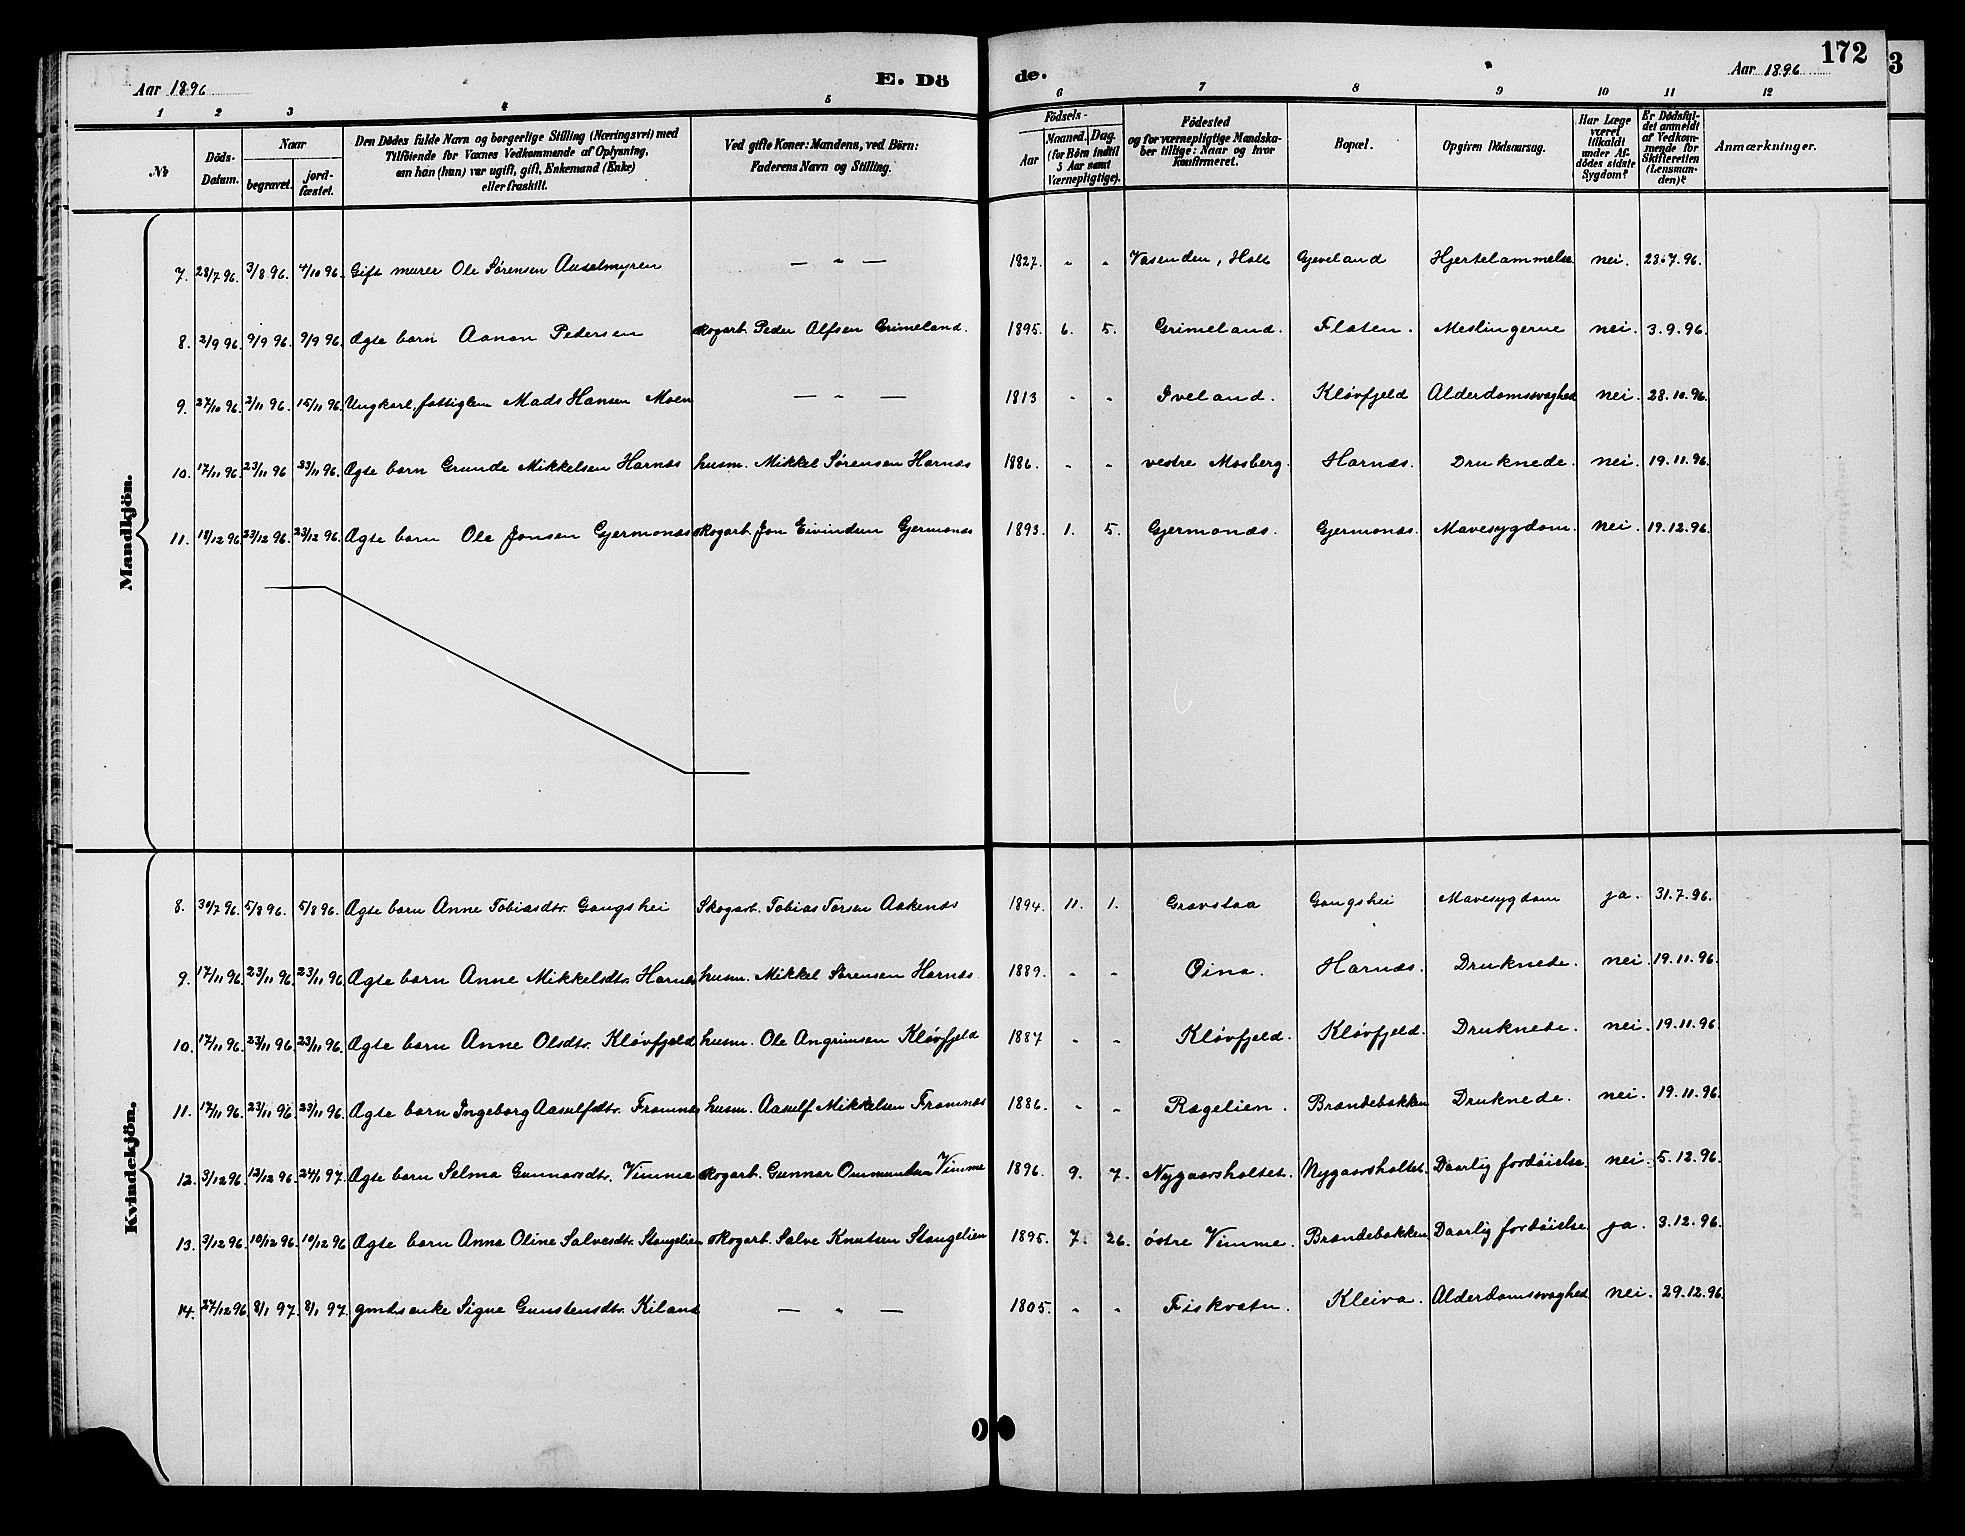 172
3
Aar 1896
E. Dö
de.
Aar 1896
1 2 3 4 5 6 7 8 9 10 11 12
№
Döds-
Datum.
Naar
begravet.
jord-
fæstet.
Den Dödes fulde Navn og borgerlige Stilling (Næringsvei) med
Tilföiende for Voxnes Vedkommende af Oplysning,
om han (hun) var ugift, gift, Enkemand (Enke)
eller fraskilt.
Ved gifte Koner: Mandens, ved Börn:
Faderens Navn og Stilling.
Födsels-
Aar
Maaned.
Dag.
(for Börn indtil
5 Aar samt
Værnepligtige).
Födested
og for værnepligtige Mandska-
ber tillige: Naar og hvor
konfirmeret.
Bopæl.
Opgiven Dödsaarsag.
Har Læge
været
tilkaldt
under Af-
dödes sidste
Sygdom?
Er Dödsfal-
det anmeldt
af Vedkom-
mende for
Skifteretten
(Lensman-
den)?
Anmærkninger.
Mandkjön.
7. 28/7 96. 3/8 96. 4/10 96. Gift murer Ole Sørensen Auselmyren — " — 1827. " " Vasenden, Holt Gjeveland Hjertelammelse nei. 28.7.96.
8. 2/9 96. 9/9 96. 9/9 96. Ægte barn Aanon Pedersen skogarb. Peder Alfsen Grimeland. 1895. 6. 5. Grimeland. Flaten. Meslingerne nei. 3.9.96.
9. 27/10 96. 2/11 96. 15/11 96. Ungkarl, fattiglem Mads Hansen Moen — " — 1813 " " Iveland. Kløvfjeld Alderdomssvaghed nei. 28.10.96.
10. 17/11 96. 23/11 96 23/11 96. Ægte barn Grunde Mikkelsen Harnæs husm. Mikkel Sørensen Harnæs 1886. " " vestre Mosberg. Harnæs. Druknede. nei. 19.11.96.
11. 18/12 96. 23/12 96. 23/12 96. Ægte barn Ole Jonsen Gjermonæs skogarb. Jon Eivindsen Gjermonæs 1893. 1. 5. Gjermonæs. Gjermonæs. Mavesygdom. nei. 19.12.96.
Kvindekjön.
8. 30/7 96. 5/8 96. 5/8 96. Ægte barn Anne Tobiasdtr. Gangshei Skogarb. Tobias Torsen Aakenæs 1894. 11. 1. Gravstaa Gangshei Mavesygdom ja. 31.7.96.
9. 17/11 96. 23/11 96. 23/11 96. Ægte barn Anne Mikkelsdtr. Harnæs husm. Mikkel Sørensen Harnæs 1889. " " Oina. Harnæs. Druknede. nei. 19.11.96.
10. 17/11 96. 23/11 96. 23/11 96. Ægte barn Anne Olsdtr. Kløvfjeld husm. Ole Angrimsen Kløvfjeld 1887 " " Kløvfjeld. Kløvfjeld. Druknede. nei. 19.11.96
11. 17/11 96. 23/11 96 23/11 96. Ægte barn Ingeborg Aasulfsdtr. Framnæs husm. Aasulf Mikkelsen Framnæs 1886. " " Ragelien. Brandebakken Druknede. nei. 19.11.96.
12. 3/12 96. 12/12 96. 24/1 97. Ægte barn Selma Gunnarsdtr. Vimme skogarb. Gunnar Ommundsen Vimme 1896. 9. 7. Nygaarsholtet. Nygaarsholtet. Daarlig fordöielse. nei. 5.12.96.
13. 3/12 96. 10/12 96. 10/12 96 Ægte barn Anna Oline Salvesdtr. Stangelien skogarb. Salve Knutsen Stangelien 1895. 7. 26. östre Vimme. Brandebakken Daarlig fordöielse ja. 3.12.96.
14. 27/12 96. 8/1 97. 8/1 97. gmds enke Signe Gunstensdtr. Kiland — " — 1805. " " Fiskvatn. Kleiva. Alderdomssvaghed nei. 29.12.96.